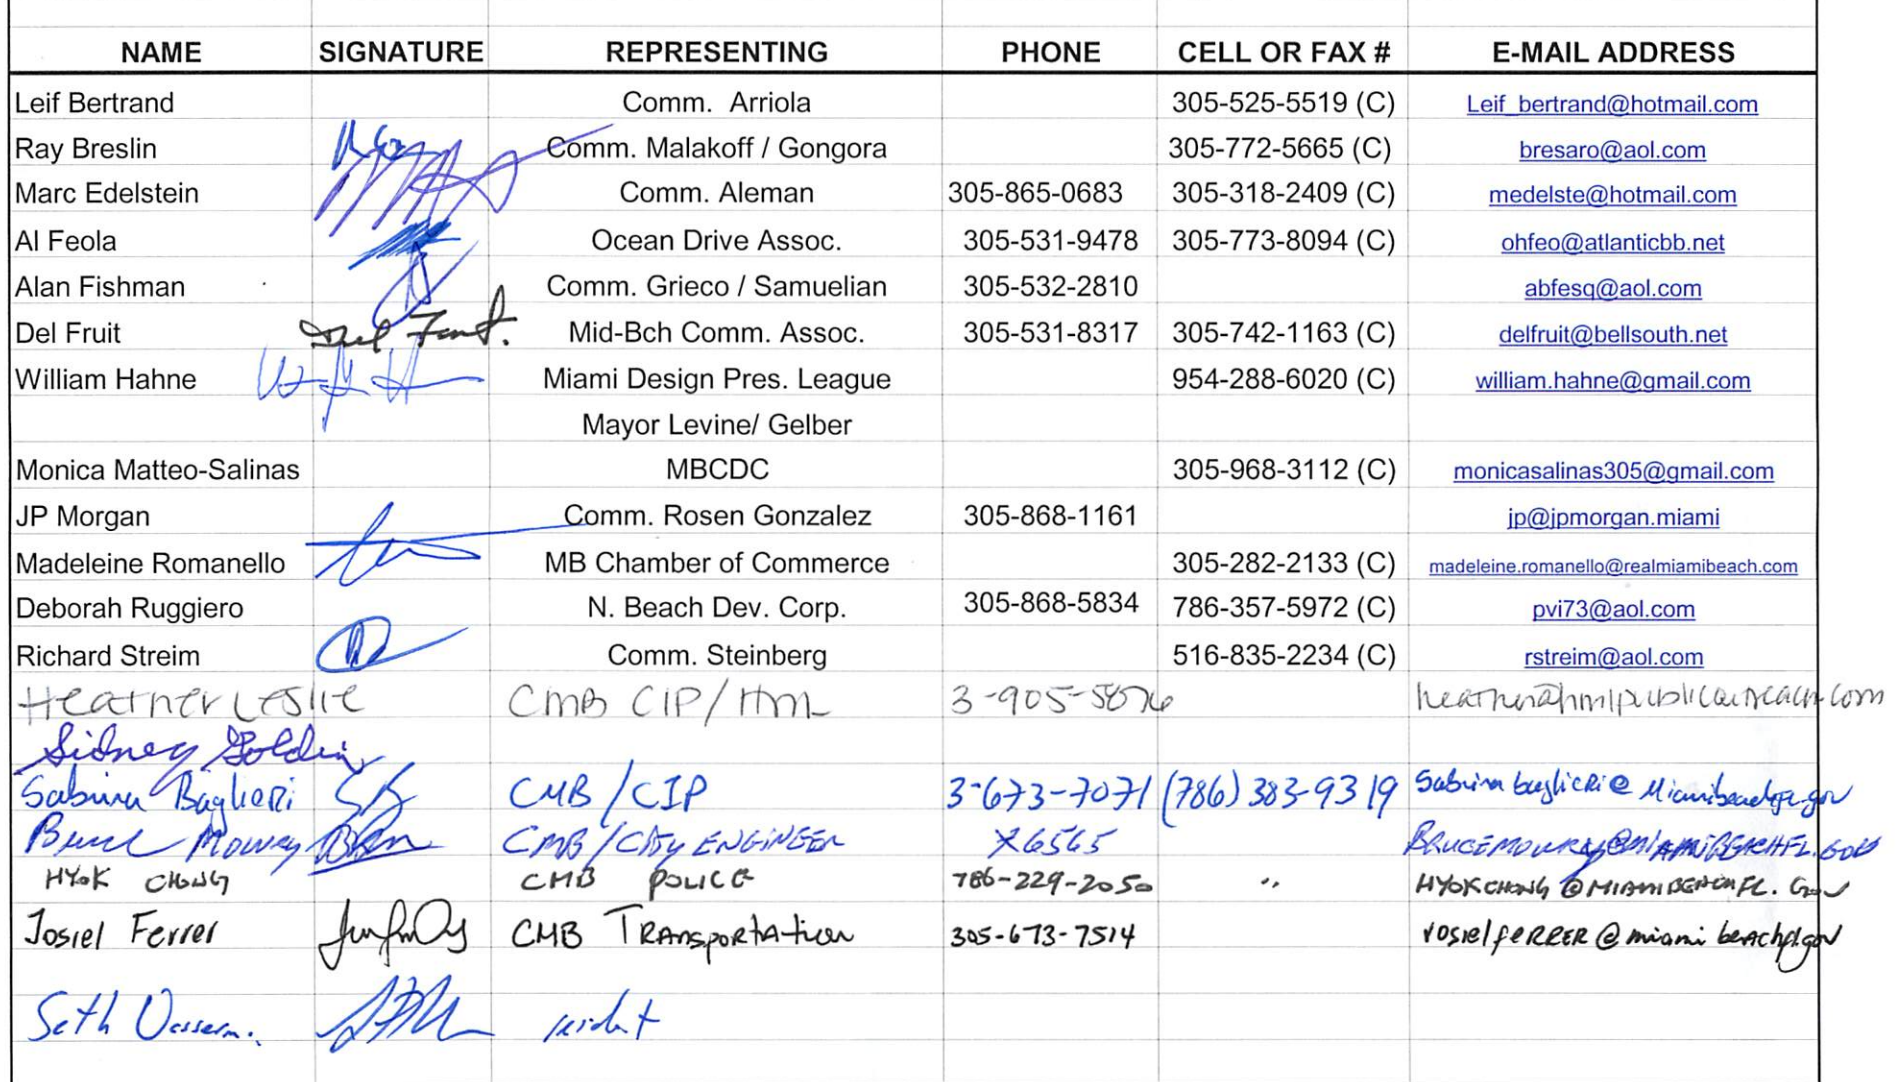 NAME SIGNATURE REPRESENTING PHONE CELL OR FAX # E-MAIL ADDRESS
Leif Bertrand Comm. Arriola 305-525-5519 (C) Leif_bertrand@hotmail.com
Ray Breslin Comm. Malakoff / Gongora 305-772-5665 (C) bresaro@aol.com
Marc Edelstein Comm. Aleman 305-865-0683 305-318-2409 (C) medelste@hotmail.com
Al Feola Ocean Drive Assoc. 305-531-9478 305-773-8094 (C) ohfeo@atlanticbb.net
Alan Fishman Comm. Grieco / Samuelian 305-532-2810 abfesq@aol.com
Del Fruit Del Fruit. Mid-Bch Comm. Assoc. 305-531-8317 305-742-1163 (C) delfruit@bellsouth.net
William Hahne Miami Design Pres. League 954-288-6020 (C) william.hahne@gmail.com
Mayor Levine/ Gelber
Monica Matteo-Salinas MBCDC 305-968-3112 (C) monicasalinas305@gmail.com
JP Morgan Comm. Rosen Gonzalez 305-868-1161 jp@jpmorgan.miami
Madeleine Romanello MB Chamber of Commerce 305-282-2133 (C) madeleine.romanello@realmiamibeach.com
Deborah Ruggiero N. Beach Dev. Corp. 305-868-5834 786-357-5972 (C) pvi73@aol.com
Richard Streim Comm. Steinberg 516-835-2234 (C) rstreim@aol.com
Heather Leslie CMB CIP/HML 3-905-5876 heather@hmlpublicoutreach.com
Sidney Goldin
Sabrina Baglieri SB CMB/CIP 3-673-7071 (786) 383-9319 Sabrina baglieri@Miamibeachfl.gov
Bruce Mowry CMB/City ENGINEER X6565 BRUCEMOWRY@MIAMIBEACHFL.GOV
HYOK CHONG CMB POLICE 786-229-2050 " HYOKCHONG@MIAMIBEACHFL.GOV
Josiel Ferrer CMB TRANSportAtion 305-673-7514 josielfeRRER@miami beAchfl.gov
Seth resident